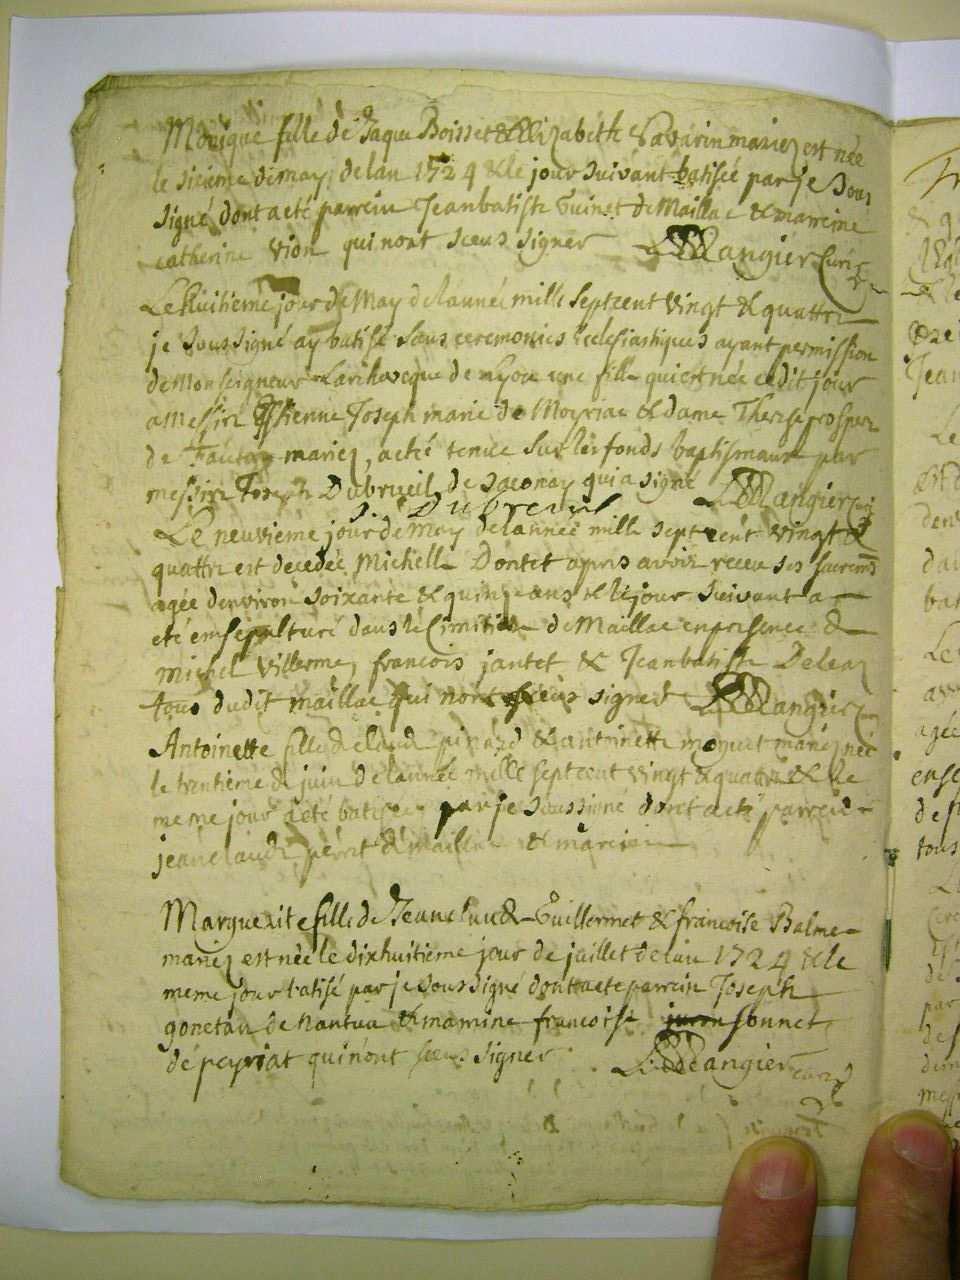 Monique fille de Jaque Boisset & Elizabeth Savarin mariez est née
le sixieme de may de lan 1724 & le jour suivant batisée par je sous
signé dont a eté parrein Jeanbatiste Guinet de Maillac & marreine
catherine vion qui nont sceus signer Mangier Curé
Le huitieme jour de May de lannée mille septcent vingt & quattre
je sous signé ay batisé sans ceremonies Ecclesiastiques ayant permission
de Monseigneur Larchevecque de Lyon une fille qui est née cedit jour
a Messire Estienne Joseph marie de Moyriac & dame Therese prosper
de mariez, a eté tenue sur les fonds baptismaux par
messire Joseph Dubrueil de Saconay qui a signé Mangier Curé
S. Dubreuil
Le neuvieme jour de May de lannée mille septcent vingt &
quattre est decedée Michelle Dontet apres avoir receu ses sacrem͞s
agée denviron soixante & quinze ans & le jour suivant a
eté ensépulturé dans le Cimitiere de Maillac en presence de
michel villerme, francois jantet & Jeanbatiste
tous dudit maillac qui nont sceus signer Mangier
Antoinette fille de claude pinard & antoinette moquet mariez née
le trentieme de juin de lannée mille septcent vingt & quattre & le
meme jour a eté batisée par je soussigné dont a eté parrein
jeanclaude de maillac & marreine
Marguerite fille de Jeanclaude Guillermet & francoise Balme
mariez est née le dixhuitieme jour de juillet de lan 1724 & le
meme jour batisé par je sous signé dont a ete parrein Joseph
gonetan de nantua & marrine francoise sonnet
de peyriat qui nont sceus signer Mangier curé